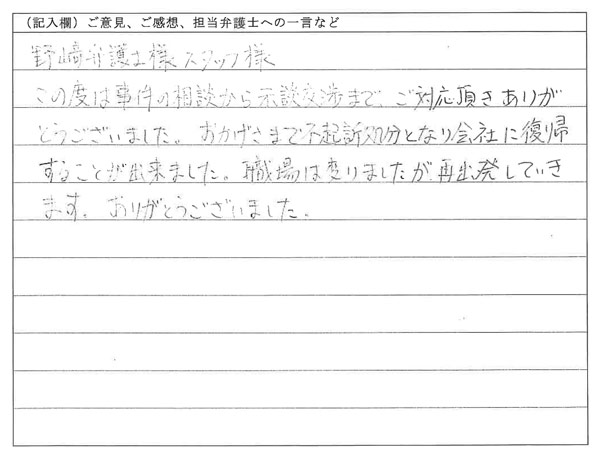 （記入欄）ご意見、ご感想、担当弁護士への一言など
野﨑弁護士様 スタッフ様
この度は事件の相談から示談交渉まで、ご対応頂きありが
とうございました。 おかげさまで不起訴処分となり会社に復帰
することが出来ました。職場は変りましたが再出発していき
ます。 ありがとうございました。